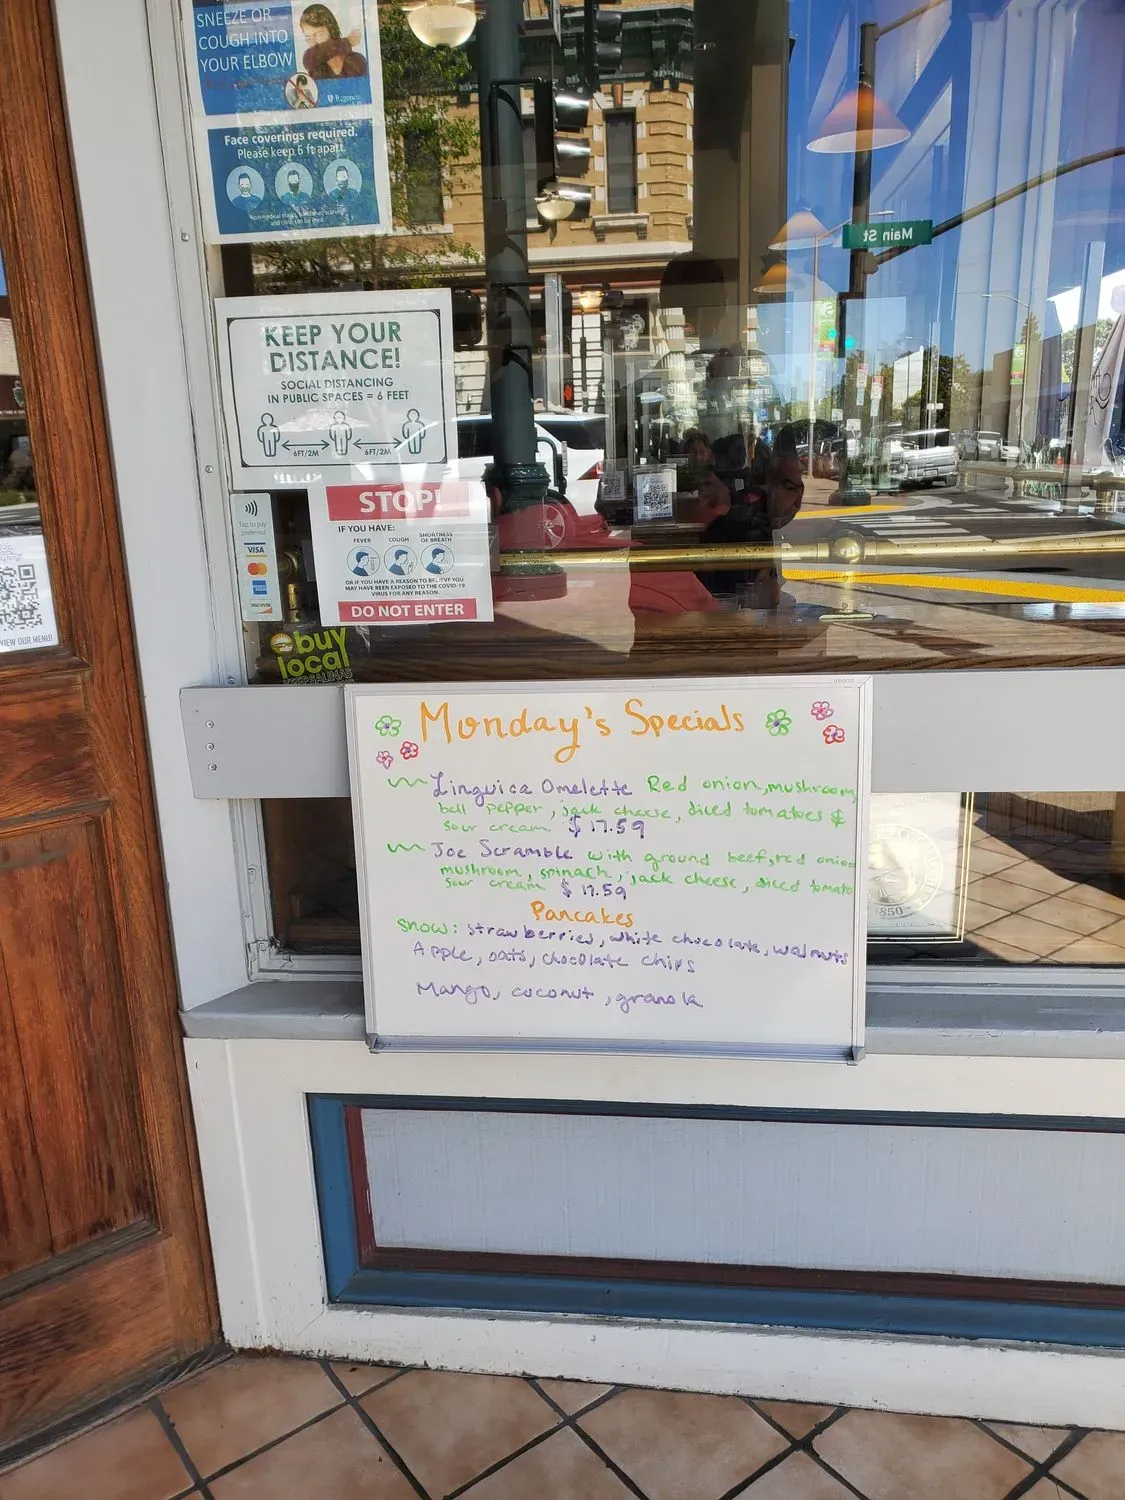 SNEEZE OR
COUGH INTO
YOUR ELBOW
Regence
Face coverings required.
Please keep 6 ft apart.
Non-medical masks, bandanas, scarves
and cloth can be used.
Main St
KEEP YOUR
DISTANCE!
SOCIAL DISTANCING
IN PUBLIC SPACES = 6 FEET
6FT/2M 6FT/2M
STOP!
IF YOU HAVE:
FEVER COUGH SHORTNESS OF BREATH
OR IF YOU HAVE A REASON TO BELIEVE YOU
MAY HAVE BEEN EXPOSED TO THE COVID-19
VIRUS FOR ANY REASON.
DO NOT ENTER
Tap to pay
preferred
VISA
DISCOVER
VIEW OUR MENU!
buy
local
Monday's Specials
Linguica Omelette Red onion, mushroom,
bell pepper, jack cheese, diced tomatoes &
sour cream $17.59
Joe Scramble with ground beef, red onion
mushroom, spinach, jack cheese, diced tomato
sour cream $17.59
Pancakes
Snow: strawberries, white chocolate, walnuts
Apple, oats, chocolate chips
Mango, coconut, granola
850